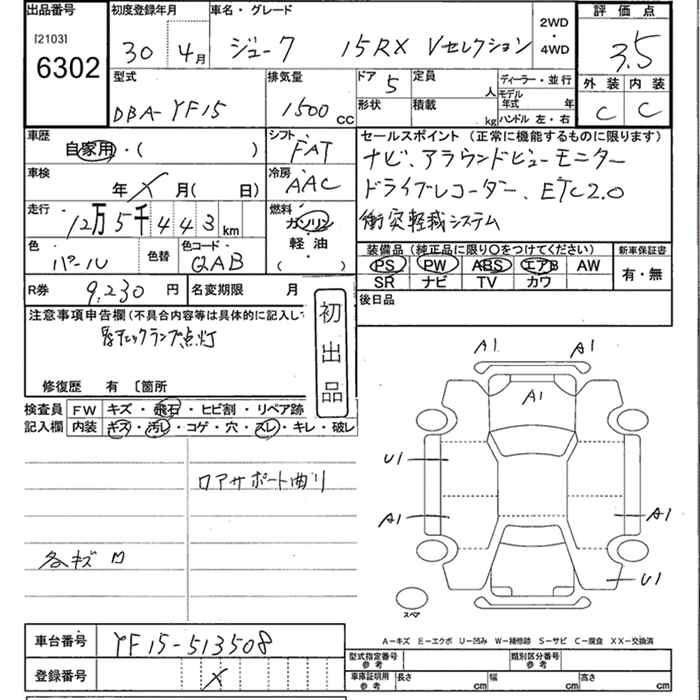 出品番号 初度登録年月 車名・グレード 2WD・4WD 評価点
[2103]
6302 30年 4月 ジューク 15RX Vセレクション 3.5
型式 排気量 ドア 5 定員 人 ディーラー・並行 外装 内装
DBA-YF15 1500cc 形状 積載 kg モデル年式 年 C C
ハンドル 左・右
車歴 シフト セールスポイント (正常に機能するものに限ります)
自家用・( ) FAT ナビ、アラウンドビューモニター
車検 冷房 ドライブレコーダー、ETC2.0
年 月( 日) AAC 衝突軽減システム
走行 12万5千443km 燃料 ガソリン・軽油・( )
色 色替 色コード 装備品 (純正品に限り〇をつけてください) 新車保証書
パール QAB PS PW ABS エアB AW 有・無
SR ナビ TV カワ
R券 9,230円 名変期限 月 後日品
注意事項申告欄 (不具合内容等は具体的に記入して
チェックランプ点灯
初出品
修復歴 有 〔箇所
検査員 FW キズ・飛石・ヒビ割・リペア跡
記入欄 内装 キズ・汚レ・コゲ・穴・スレ・キレ・破レ
A1 A1
A1
U1
ロアサポート曲り
A1 A1
各キズ
U1
スペア
A-キズ E-エクボ U-凹み W-補修跡 S-サビ C-腐食 XX-交換済
車台番号 YF15-513508 型式指定番号 参考 類別区分番号 参考
登録番号 車庫証明用 参考 長さ cm 幅 cm 高さ cm